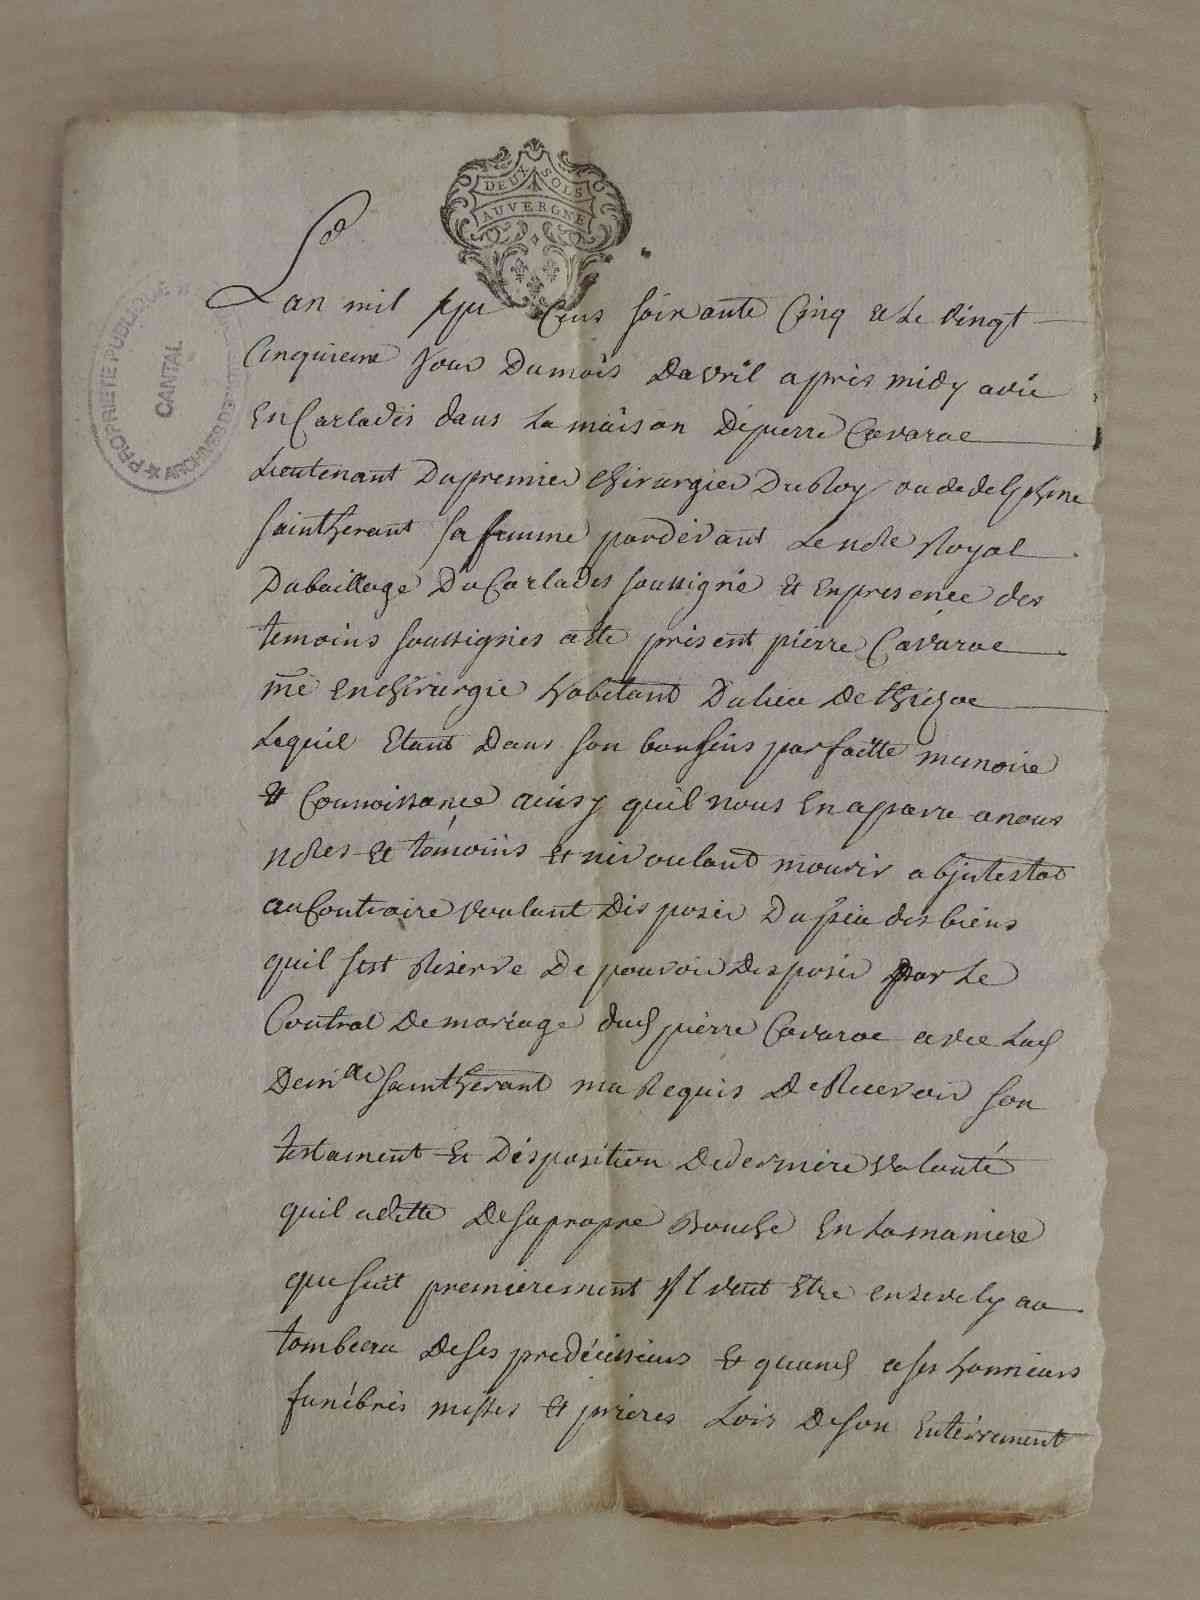 DEUX SOLS
AUVERGNE
PROPRIETE PUBLIQUE
CANTAL
Lan mil sept Cens soixante Cinq et Le vingt
Cinquieme Jour Dumois Davril apres midy a vic
En Carladés dans La maison De pierre Cavarac
Lieutenant Dupremier Chirurgien Du Roy ou de delphine
saint herant sa femme pardevant Le nore Royal
Dubaillage Du Carlades soussigné Et En presence des
temoins soussignes a éte présent pierre Cavarac
me En chirurgie habitant Du lieu De thiezac
Lequel Etant Dans son bon sens parfaitte memoire
Et Connoissance ainsy quil nous En aparu a nous
nores Et témoins Et ne voulant mourir abjntestat
au Contraire voulant Disposer Du peu des biens
quil sest Réservé De pouvoir Disposer par Le
Contrat De mariage dud pierre Cavarac avec Lad
Demlle saint herant ma Requis De Recevoir son
testament Et Disposition De derniere volonté
quil a ditte De sa propre Bouche En La maniere
que suit premierement jl veut Etre ensevely au
tombeau De ses predécésseurs Et quand a ses honneurs
funébres messes Et prieres Lors De son Entérrement